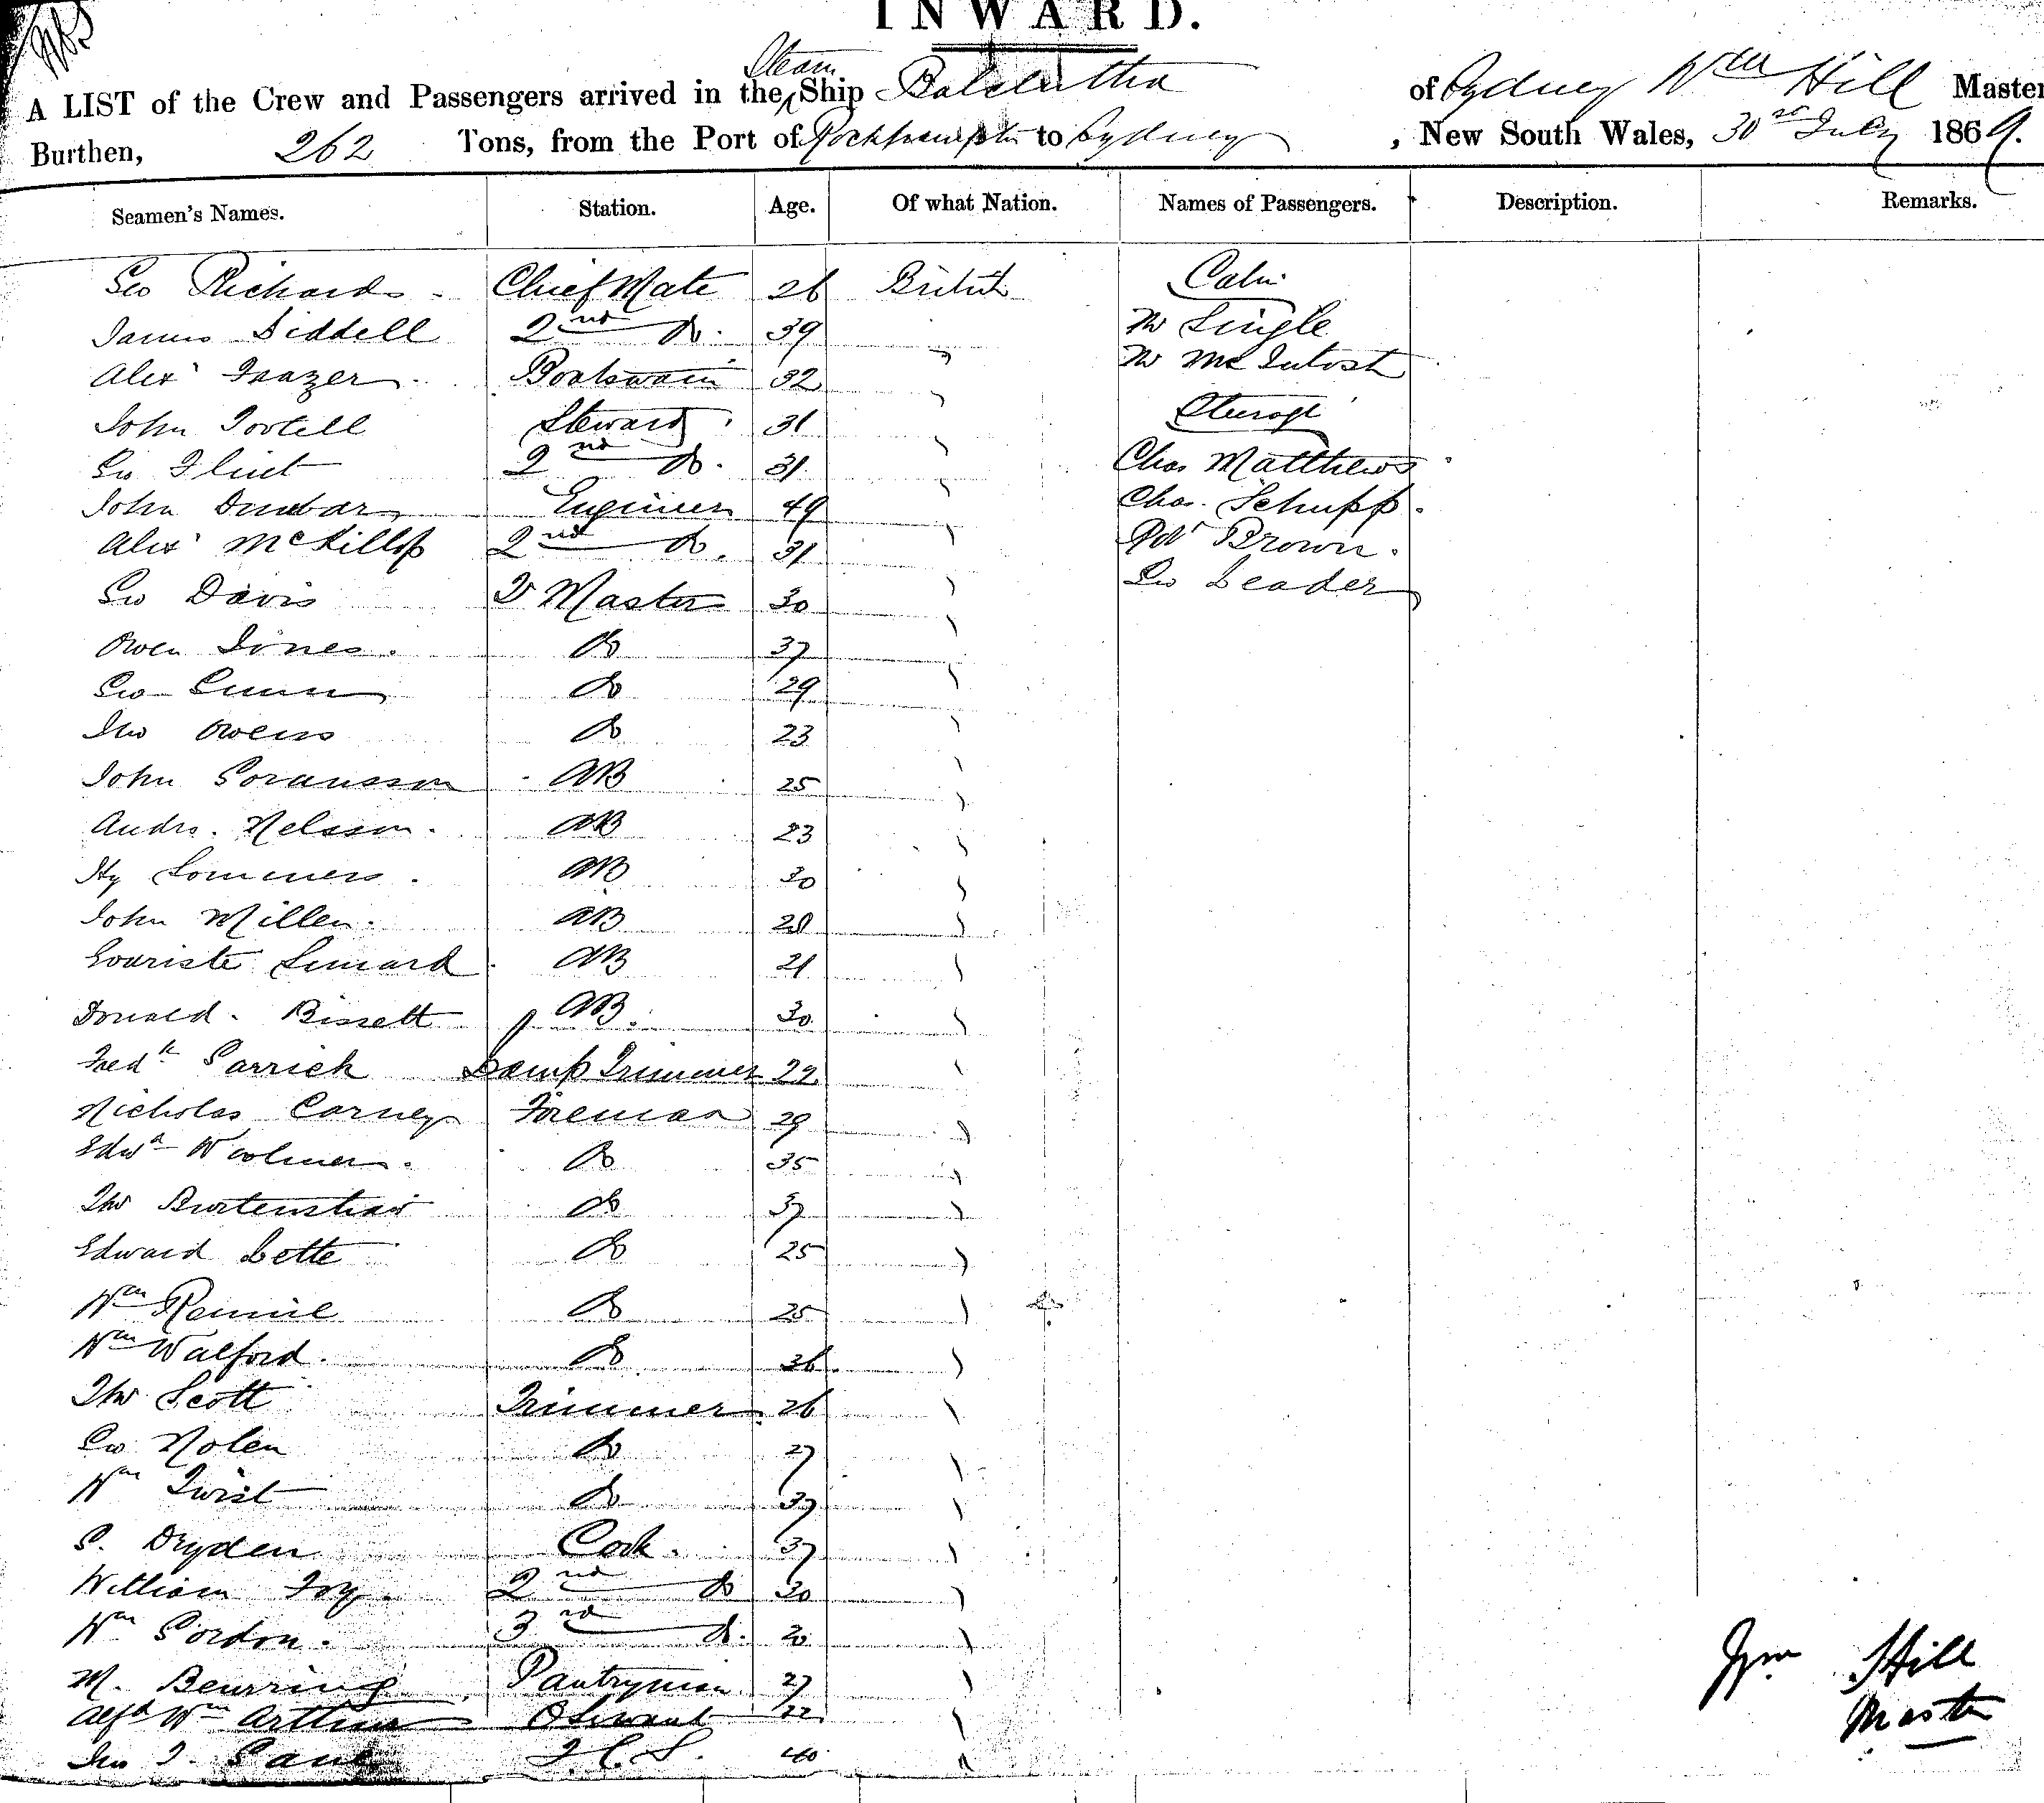 INWARD.
A LIST of the Crew and Passengers arrived in the Steam Ship Balclutha of Sydney Wm Hill Master
Burthen, 262 Tons, from the Port of Rockhampton to Sydney, New South Wales, 30 July 1869.
Seamen's Names. Station. Age. Of what Nation. Names of Passengers. Description. Remarks.
Geo Richards Chief Mate 26 British Cabin
James Liddell 2nd Do. 39 Mr Single
Alexr Frazer Boatswain 32 Mr McIntosh
John Tootell Steward 31 Steerage
Geo Flint 2nd Do. 31 Chas Matthews
John Dunbar Engineer 49 Chas. Schupp.
Alexr McKillop 2nd Do. 31 Robt Brown.
Geo Davis Q Master 30 Geo Leader
Owen Jones. Do 37
Geo Gunn Do 29
Jno Owens Do 23
John AB 25
Andrs. Nelsson. AB 23
Hy Sommers. AB 30
John Millen. AB
AB 21
Donald. Bissett AB. 30
Fredk Lamp Trimmer 22
Nicholas Carney Fireman 29
Edwd Woolmer. Do 35
Thos Burtenshaw Do 37
Edward Lette Do 25
Wm Rennie Do 25
Wm Walford. Do 36
Thos Scott Trimmer 26
Geo Nolen Do 27
Wm Twist Do 37
G. Dryden Cook. 37
William Foy. 2nd Do 30
Wm Gordon. 3rd Do. 20
M. Pantryman 27
Alfd Wm Arthur 22
Jno T. 40
Wm Hill
Master